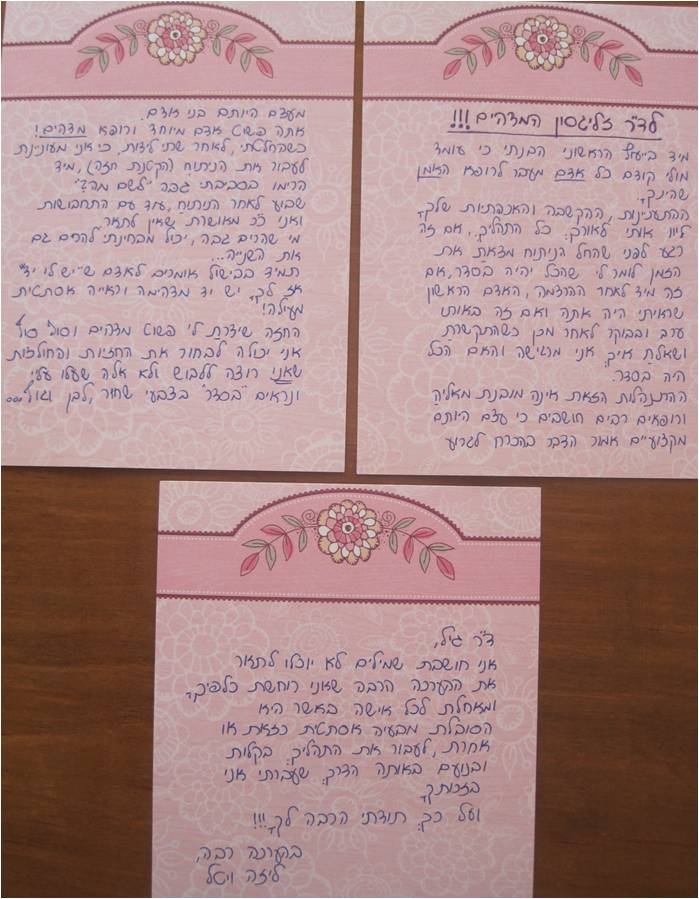 לד"ר זליגסון המדהים!!!
מיד בייעוץ הראשוני הבנתי כי עומד
מולי קודם כל אדם מעבר לרופא האמן
שהינך.
ההתעניינות, ההקשבה והאכפתיות שלך
ליוו אותי לאורך כל התהליך. אם זה
רגע לפני שהחל הניתוח מצאת את
הזמן לומר לי שהכל יהיה בסדר, אם
זה מיד לאחר ההרדמה, האדם הראשון
שראיתי היה אתה ואם זה באותו
ערב ובבוקר לאחר מכן כשהתקשרת
ושאלת איך אני מרגישה והאם הכל
היה בסדר.
ההתנהלות הזאת אינה מובנת מאליה
ורופאים רבים חושבים כי עצם היותם
מקצועיים אמור הדבר בהכרח לגרוע
מעצם היותם בני אדם.
אתה פשוט אדם מיוחד ורופא מדהים!
כשהחלטתי, לאחר שתי לידות, כי אני מעוניינת
לעבור את הניתוח (הקטנת חזה), מיד
הרימו בסביבתי גבה "לשם מה?"
שבוע לאחר הניתוח, עוד עם התחבושות
ואני כ"כ מאושרת שאין לתאר.
מי שהרים גבה, יכול מבחינתי להרים גם
את השנייה...
תמיד בבישול אומרים לאדם ש"יש לו יד"
אז לך, יש יד מדהימה וראייה אסתטית
מעולה!
החזה שיצרת לי פשוט מדהים וסוף סוף
אני יכולה לבחור את החזיות והחולצות
שאני רוצה ללבוש ולא אלה שעלו עליי
ונראים "בסדר" בצבעי שחור, לבן וגוף...
ד"ר גיל,
אני חושבת שמילים לא יוכלו לתאר
את ההערכה הרבה שאני רוחשת כלפיך,
ומאחלת לכל אישה באשר היא
הסובלת מבעיה אסתטית כזאת או
אחרת, לעבור את התהליך בקלות
ובנועם באותה הדרך שעברתי אני
בזכותך
ועל כך תודתי הרבה לך!!!
בהערכה רבה,
ליזה ויטל